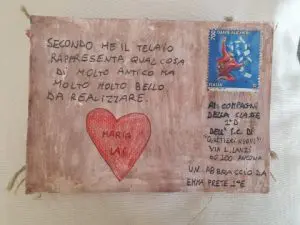 SECONDO ME IL TELAIO
RAPPRESENTA QUALCOSA
DI MOLTO ANTICO MA
MOLTO MOLTO BELLO
DA REALIZZARE.
MARIA
LAI
DANTE ALIGHIERI
ITALIA
AI COMPAGNI
DELLA CLASSE
1ªD
DELL' I.C. DI
"QUARTIERI NUOVI"
VIA L. LANZI
60200 ANCONA
UN ABBRACCIO DA
EMMA PRETE 1ªE